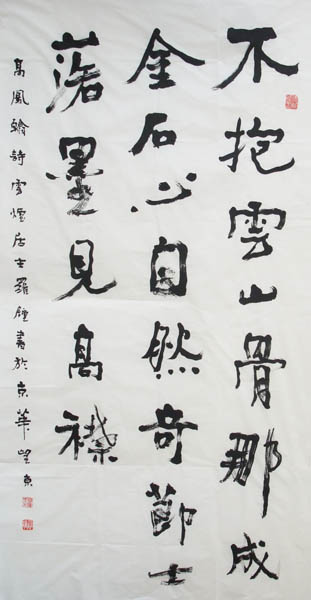 不抱雲山骨那成
金石心自然奇節士
落墨見高襟
高風翰詩雪煙居士羅鍾書於京華望京